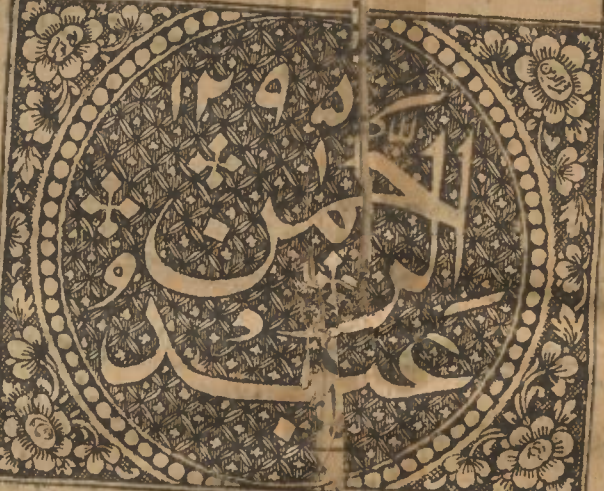 ١٢٩٥
عبد الرحمن